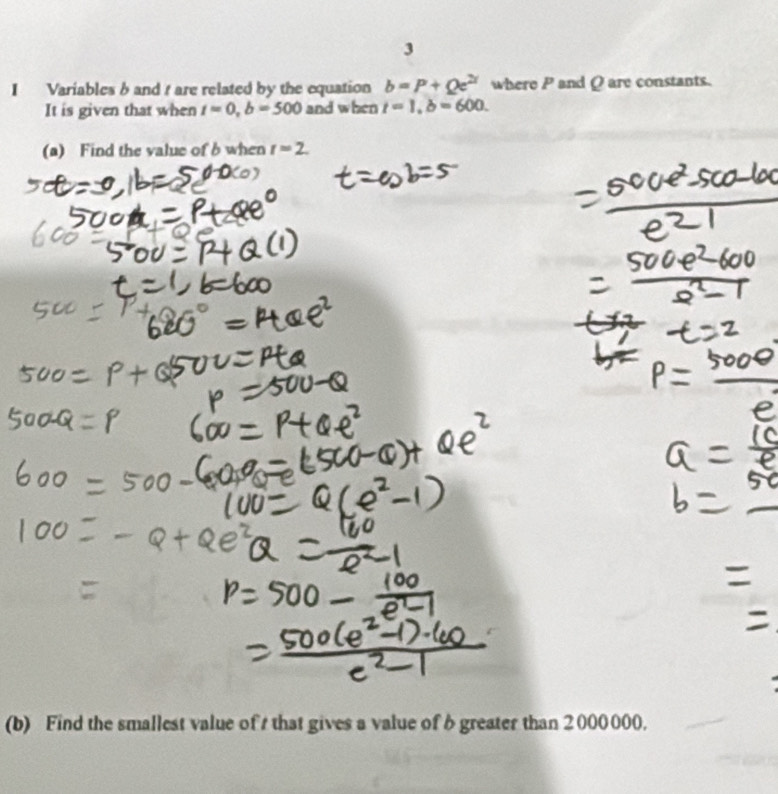 3
1 Variables b and t are related by the equation b = P + Qe^{2t} where P and Q are constants.
It is given that when t = 0, b = 500 and when t = 1, b = 600.
(a) Find the value of b when t = 2.
t=0, b=500
500 = P+Qe^0
500 = P+Q(1)
t=1, b=600
600 = P+Qe^2
500 = P+Q
P = 500-Q
600 = P+Qe^2
600 = (500-Q)+Qe^2
100 = Q(e^2-1)
Q = 100/(e^2-1)
P = 500 - 100/(e^2-1)
= (500(e^2-1)-100)/(e^2-1)
500 = P+Q
500-Q = P
600 = 500-
100 = -Q+Qe^2
=
b=5
= (500e^2-500-100
= (500e^2-600)/(e^2-1)
t=2
P =
b =
=
=
(b) Find the smallest value of t that gives a value of b greater than 2 000 000.